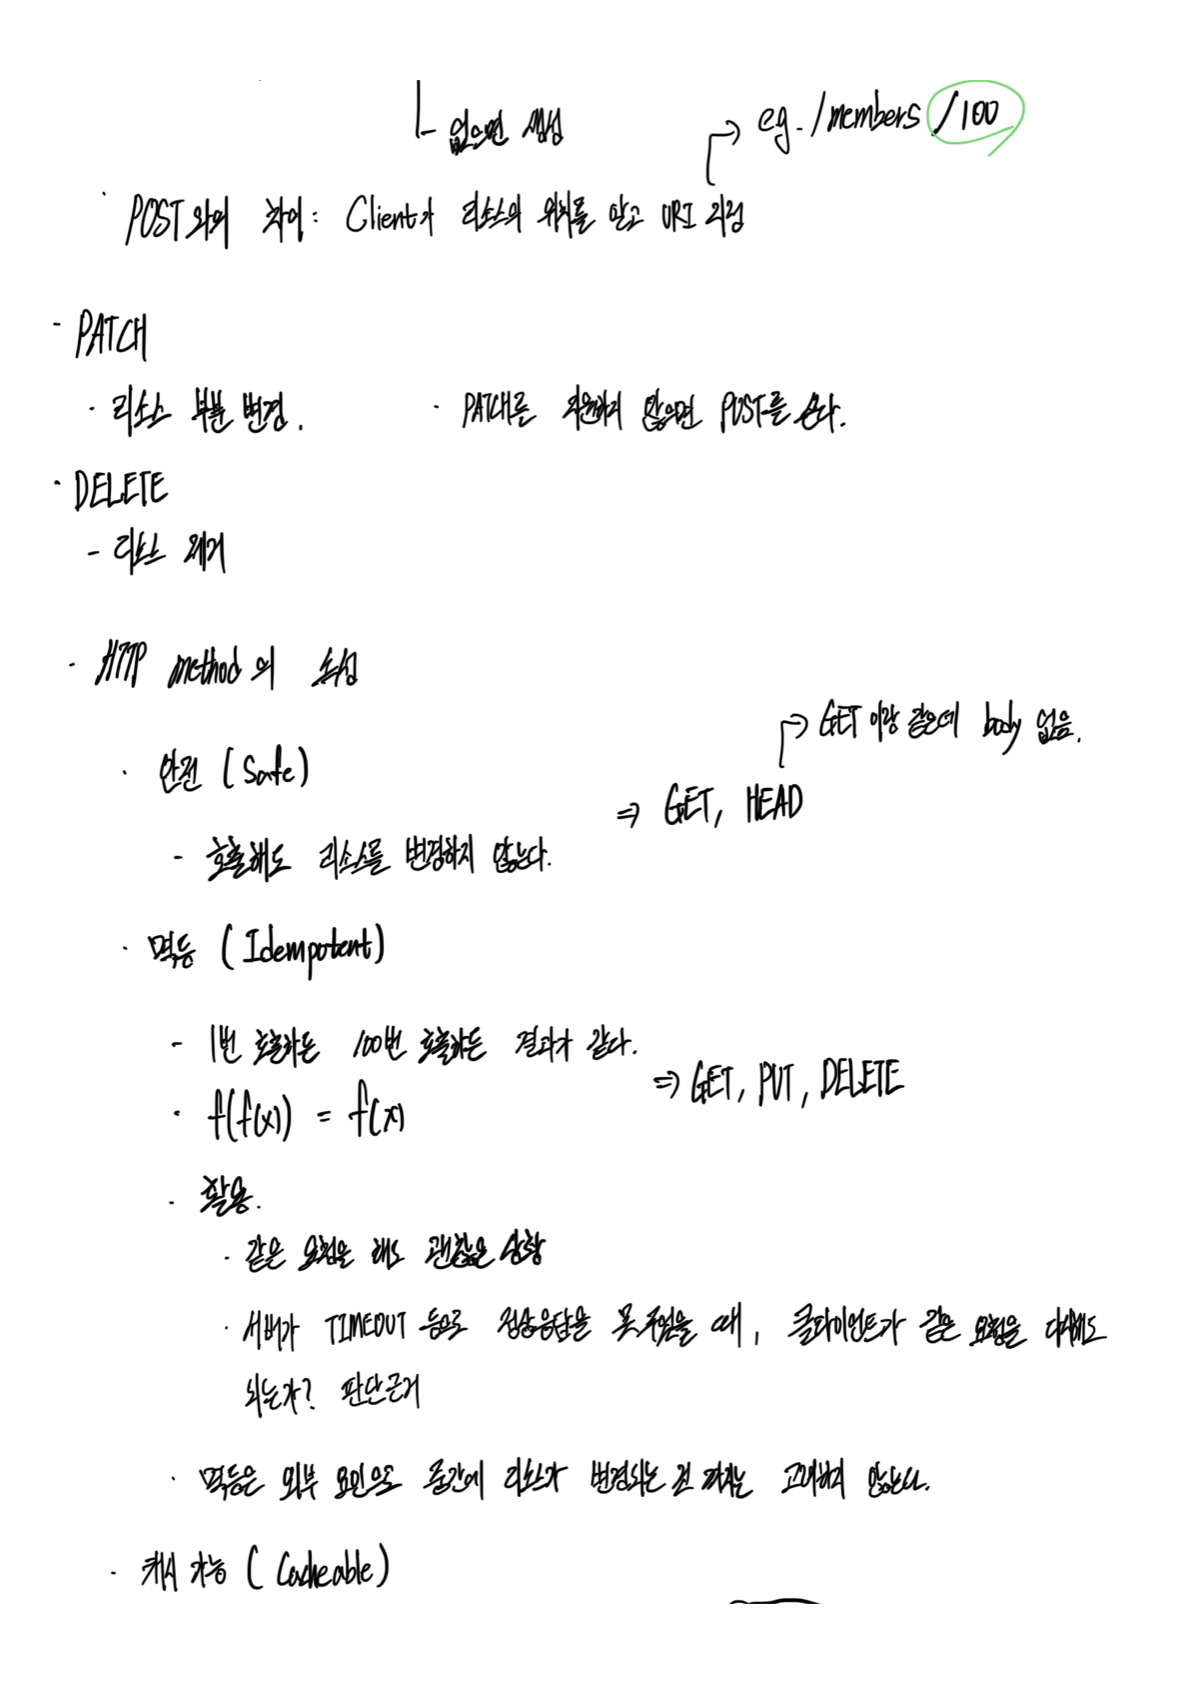 없으면 생성
eg. /members /100
POST와의 차이: Client가 리소스의 위치를 알고 URI 지정
- PATCH
· 리소스 부분 변경.
· PATCH를 지원하지 않으면 POST를 쓴다.
· DELETE
- 리소스 제거
· HTTP method의 속성
GET이랑 같은데 body 없음.
· 안전 (Safe)
⇒ GET, HEAD
- 호출해도 리소스를 변경하지 않는다.
· 멱등 (Idempotent)
- 1번 호출하든 100번 호출하든 결과가 같다.
⇒ GET, PUT, DELETE
· f(f(x)) = f(x)
· 활용.
· 같은 요청을 해도 괜찮은 상황
· 서버가 TIMEOUT 등으로 정상응답을 못 주었을 때, 클라이언트가 같은 요청을 다시해도
되는가? 판단근거
· 멱등은 외부 요인으로 중간에 리소스가 변경되는 건 까지는 고려하지 않는다.
· 캐시 가능 (Cacheable)